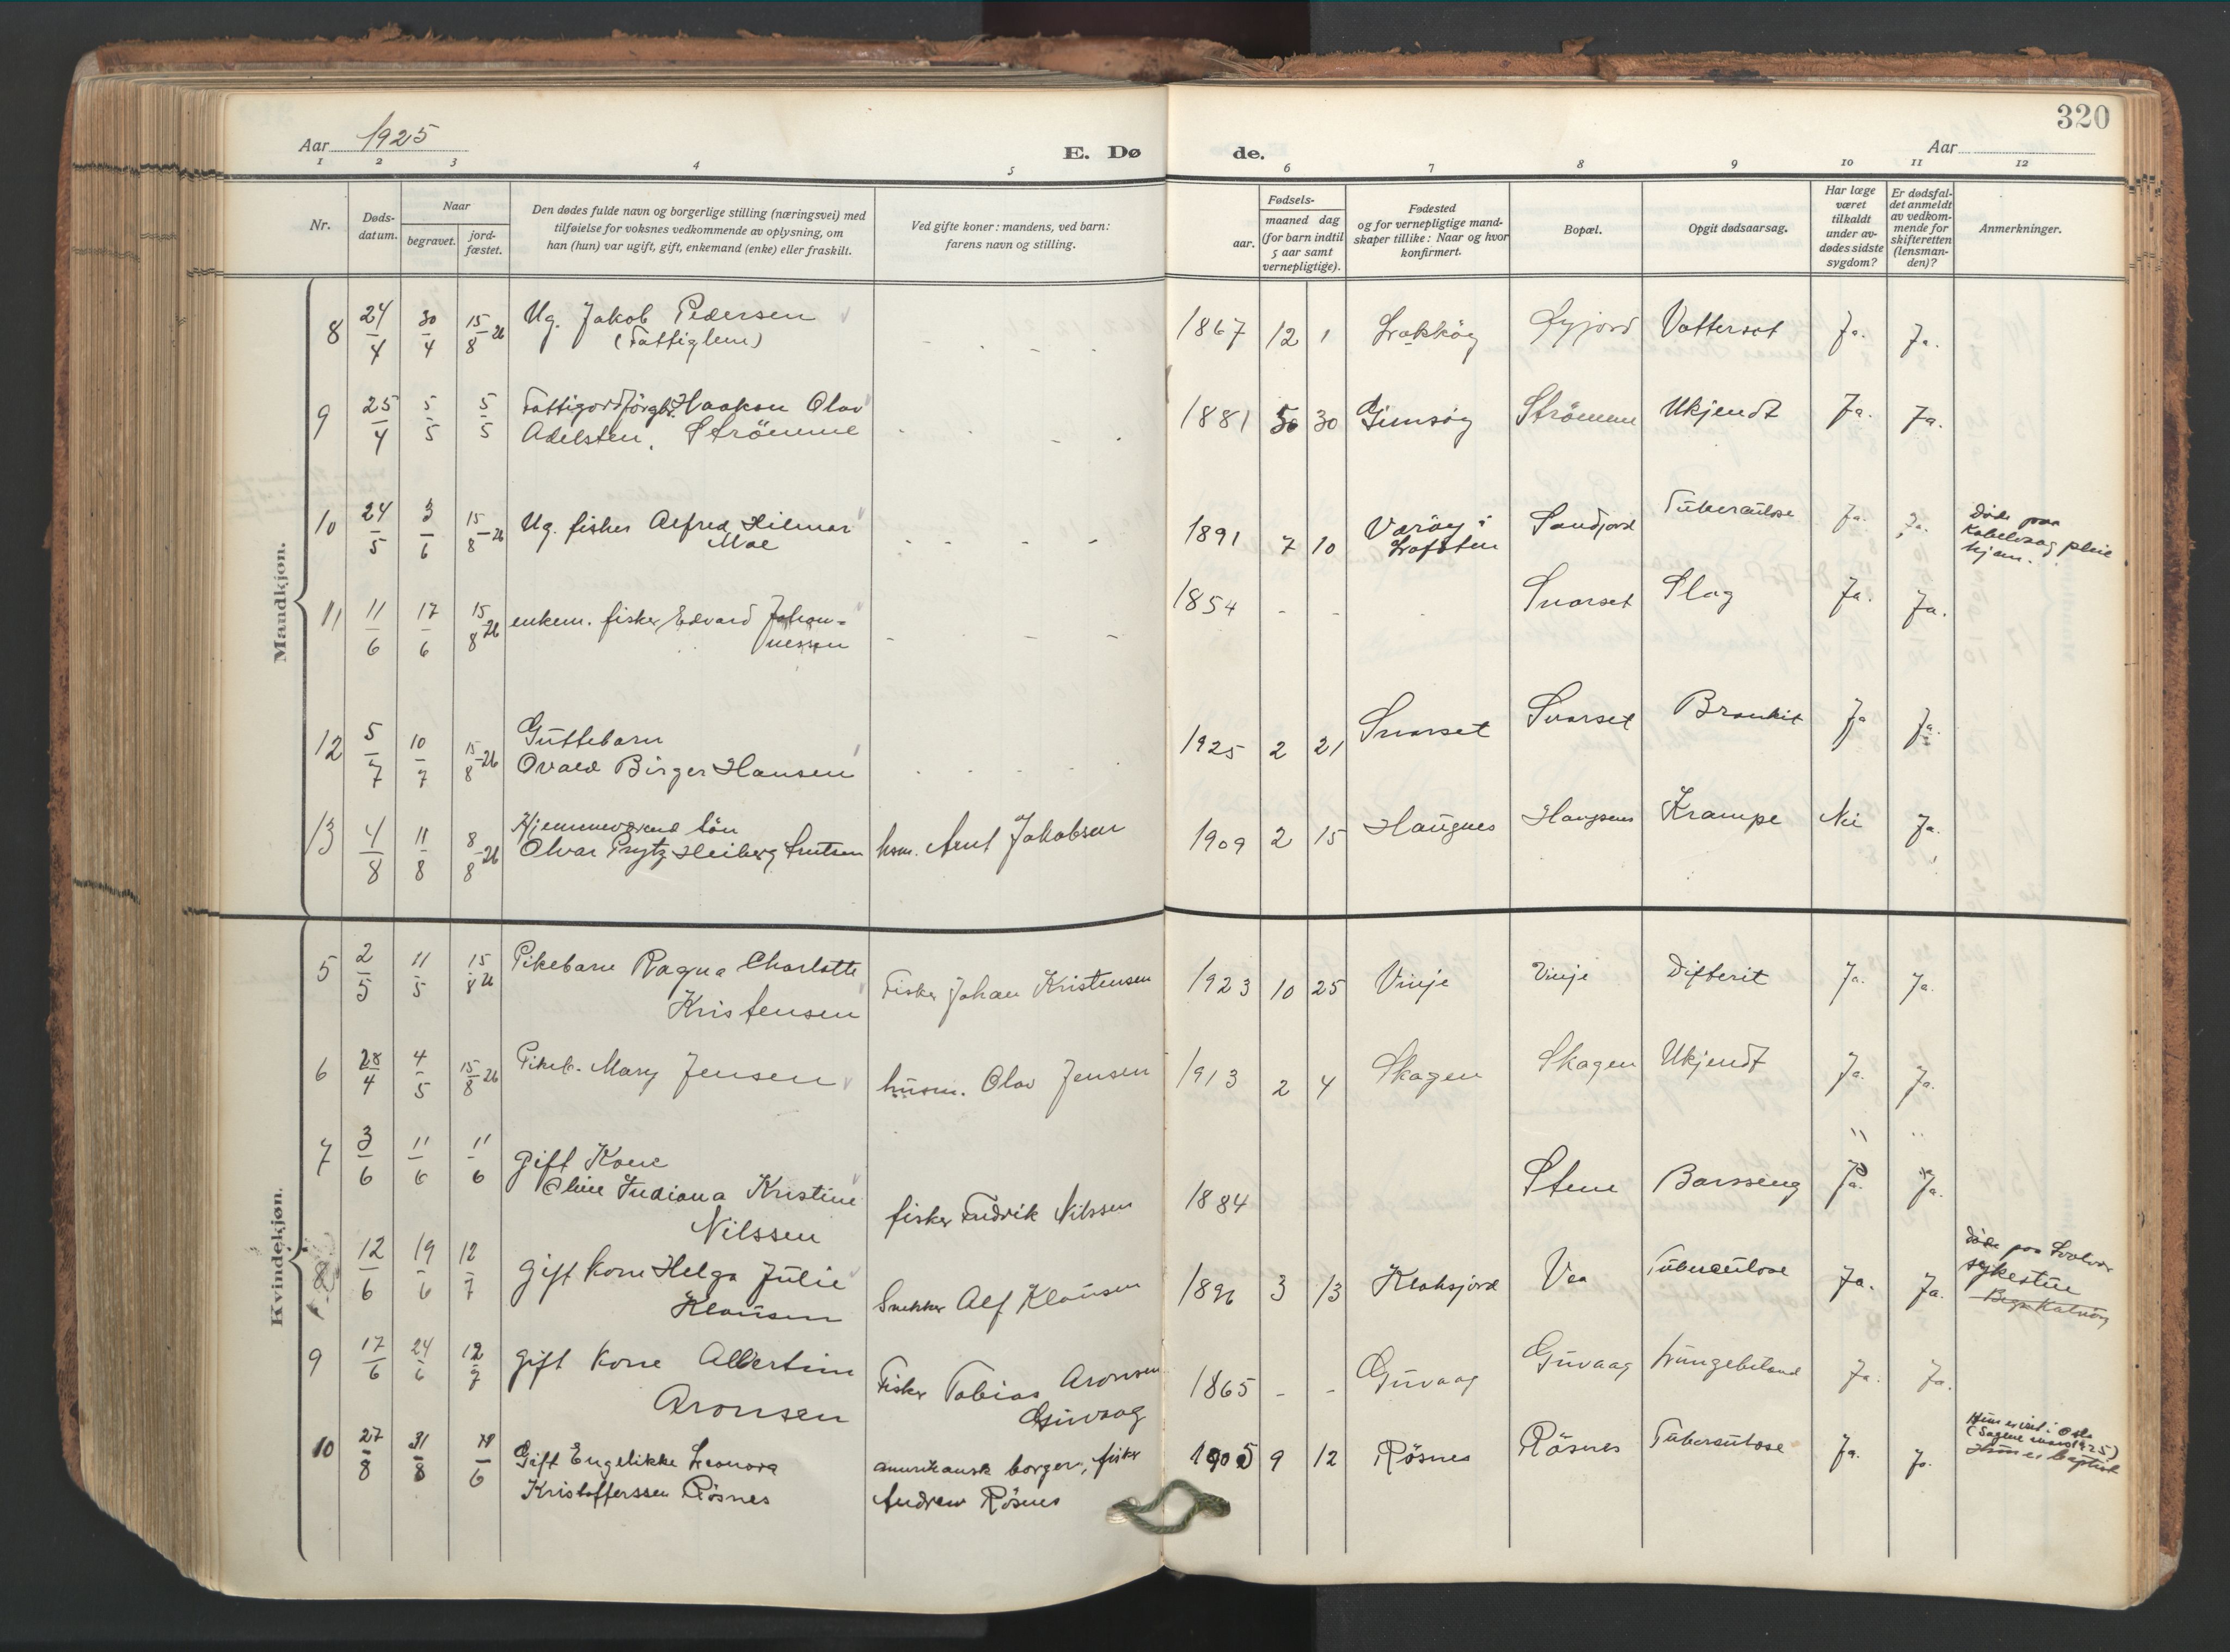 320
Aar 1925
E. Dø
de.
Aar
1 2 3 4 5 6 7 8 9 10 11 12
Nr.
Døds-
datum.
Naar
begravet.
jord-
fæstet.
Den dødes fulde navn og borgerlige stilling (næringsvei) med
tilføielse for voksnes vedkommende av oplysning, om
han (hun) var ugift, gift, enkemand (enke) eller fraskilt.
Ved gifte koner: mandens, ved barn:
farens navn og stilling.
Fødsels-
aar.
maaned dag
(for barn indtil
5 aar samt
vernepligtige).
Fødested
og for vernepligtige mand-
skaper tillike: Naar og hvor
konfirmert.
Bopæl.
Opgit dødsaarsag.
Har læge
været
tilkaldt
under av-
dødes sidste
sygdom?
Er dødsfal-
det anmeldt
av vedkom-
mende for
skifteretten
(lensman-
den)?
Anmerkninger.
Mandkjøn.
8 24/4 30/4 15/8-26 Ug. Jakob Pedersen 1867 12 1 Vattersot Ja. Ja.
(Fattiglem)
9 25/4 5/5 5/5 Haakon Olav 1881 30 Gimsöy Strömme Ukjendt Ja. Ja.
Adelsten. Strömme
10 24/5 3/6 15/8-26 Ug. fisker Alfred Hilmar 1891 7 10 Væröy i Sandjord Tuberculose Ja. Ja. Döde paa
Moe Lofoten Kabelvaag pleie
hjem.
11 11/6 17/6 15/8 26 enkem. fisker Edvard Johan- 1854 - - Slag Ja. Ja.
nessen
12 5/7 10/7 15/8-26 Guttebarn 1925 2 21 Bronkit Ja Ja.
Ovald Birger Hansen
13 4/8 11/8 8/8-26 Hjemmeværend sön
Olvar Prytz Heiberg husm. Arnt Jakobsen 1909 2 15 Haugnes Haugnes Krampe Nei Ja.
Kvindekjøn.
5 2/5 11/5 15/8 26 Pikebarn Ragna Charlotte Fisker Johan Kristensen 1923 10 25 Vinje Vinje Difterit Ja. Ja.
Kristensen
6 28/4 4/5 15/8-26 Pikeb. Mary Jensen husm. Olav Jensen 1913 2 4 Skagen Skagen Ukjendt Ja. Ja.
7 3/6 11/6 11/6 gift Kone
Oline Indiana Kristine fisker Fredrik Nilssen 1884 Stene Barsseng Ja. Ja.
Nilssen
8 12/6 19/6 12/7 gift kone Helga Julie Snekker Alf Klausen 1896 3 13 Vea Tuberculose Ja. Ja. döde paa Svolvær
Klausen sykestue
9 17/6 24/6 12/7 gift kone Albertine Fisker Tobias Aronsen 1865 - - Guvaag Guvaag Ja. Ja.
Aronsen Guvaag
10 27/8 31/8 Gift Engelikke Leonora amerikansk borger, fisker 1905 9 12 Rösnes Rösnes Tuberculose Ja. Ja.
Kristofferssen Rösnes Andrew Rösnes
Hun er baptist